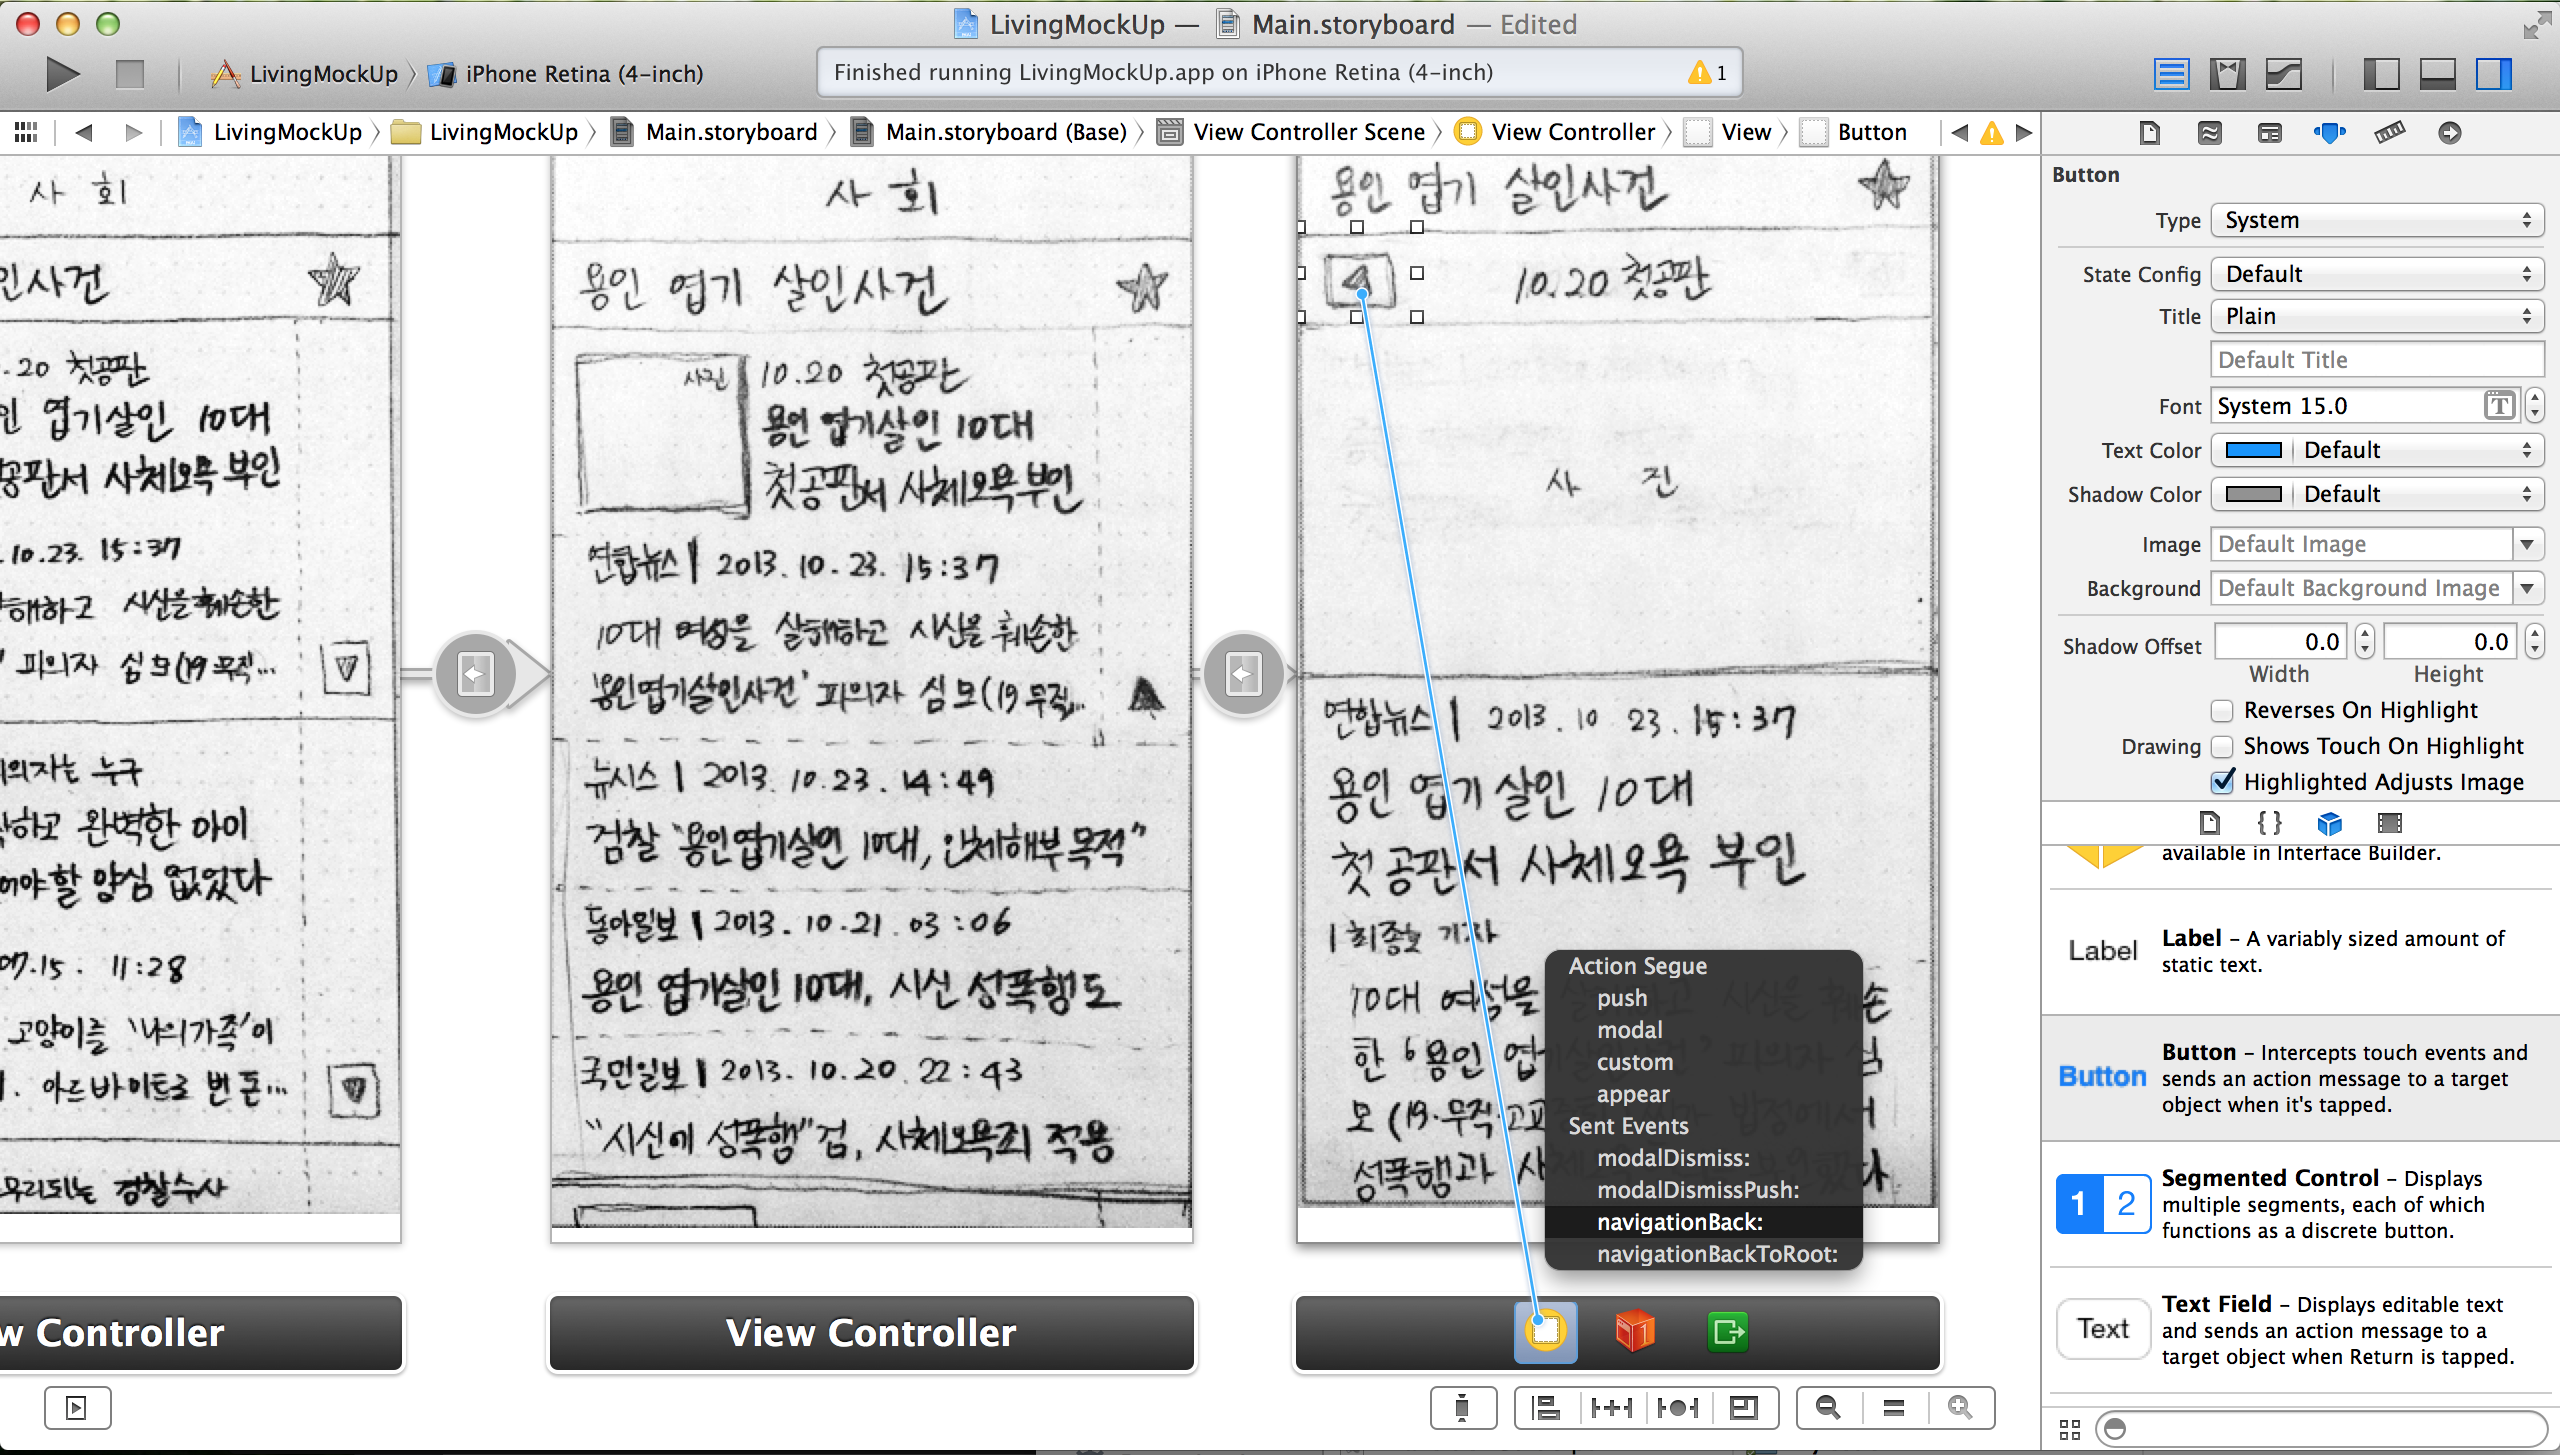 LivingMockUp — Main.storyboard — Edited
LivingMockUp iPhone Retina (4-inch)
Finished running LivingMockUp.app on iPhone Retina (4-inch) 1
LivingMockUp LivingMockUp Main.storyboard Main.storyboard (Base) View Controller Scene View Controller View Button
사 회
인사건
.20 첫공판
인 엽기살인 10대
공판서 사체오욕 부인
.10.23. 15:37
해하고 시신을 훼손한
' 피의자 심모(19 무직...
의자는 누구
하고 완벽한 아이
어야할 양심 없었다
07.15. 11:28
고양이를 '나의가족'이
. 아르바이트로 번 돈...
무리되는 경찰수사
사 회
용인 엽기 살인사건
사진
10.20 첫공판
용인 엽기살인 10대
첫공판서 사체오욕부인
연합뉴스 | 2013. 10. 23. 15:37
10대 여성을 살해하고 시신을 훼손한
'용인엽기살인사건' 피의자 심모(19 무직...
뉴시스 | 2013. 10.23. 14:49
검찰 "용인엽기살인 10대, 인체해부목적"
동아일보 | 2013. 10.21. 03:06
용인 엽기살인 10대, 시신 성폭행도
국민일보 | 2013. 10.20. 22:43
"시신에 성폭행" 검, 사체오욕죄 적용
용인 엽기 살인사건
10.20 첫공판
사 진
연합뉴스 | 2013. 10 23. 15:37
용인 엽기 살인 10대
첫 공판서 사체오욕 부인
| 최종호 기자
10대 여성을 살해하고 시신을 훼손
한 '용인 엽기살인사건' 피의자 심
모 (19·무직·고교 법정에서
성폭행과 사체
Action Segue
push
modal
custom
appear
Sent Events
modalDismiss:
modalDismissPush:
navigationBack:
navigationBackToRoot:
w Controller
View Controller
Button
Type System
State Config Default
Title Plain
Default Title
Font System 15.0
Text Color Default
Shadow Color Default
Image Default Image
Background Default Background Image
Shadow Offset 0.0 0.0
Width Height
Reverses On Highlight
Drawing Shows Touch On Highlight
Highlighted Adjusts Image
available in Interface Builder.
Label Label – A variably sized amount of
static text.
Button – Intercepts touch events and
Button sends an action message to a target
object when it's tapped.
Segmented Control – Displays
1 2 multiple segments, each of which
functions as a discrete button.
Text Field – Displays editable text
Text and sends an action message to a
target object when Return is tapped.